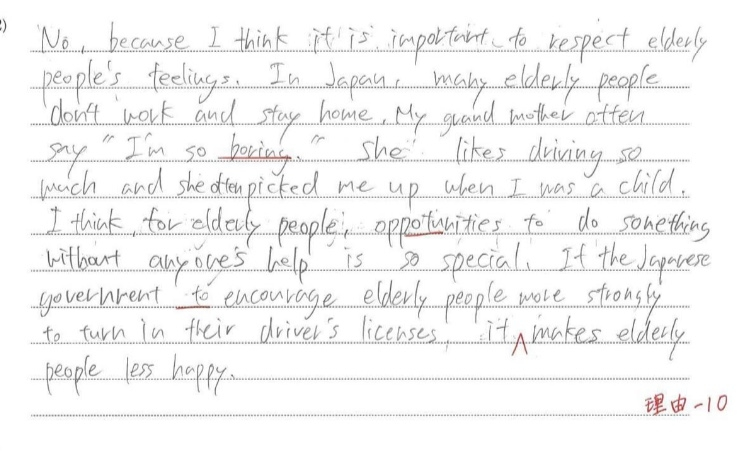 No, because I think it is important to respect elderly
people's feelings. In Japan, many elderly people
don't work and stay home. My grand mother often
say "I'm so boring." she likes driving so
much and she often picked me up when I was a child.
I think, for elderly people, oppotunities to do something
without anyone's help is so special. If the Japanese
government to encourage elderly people more strongly
to turn in their driver's licenses, it makes elderly
people less happy.
理由 -10